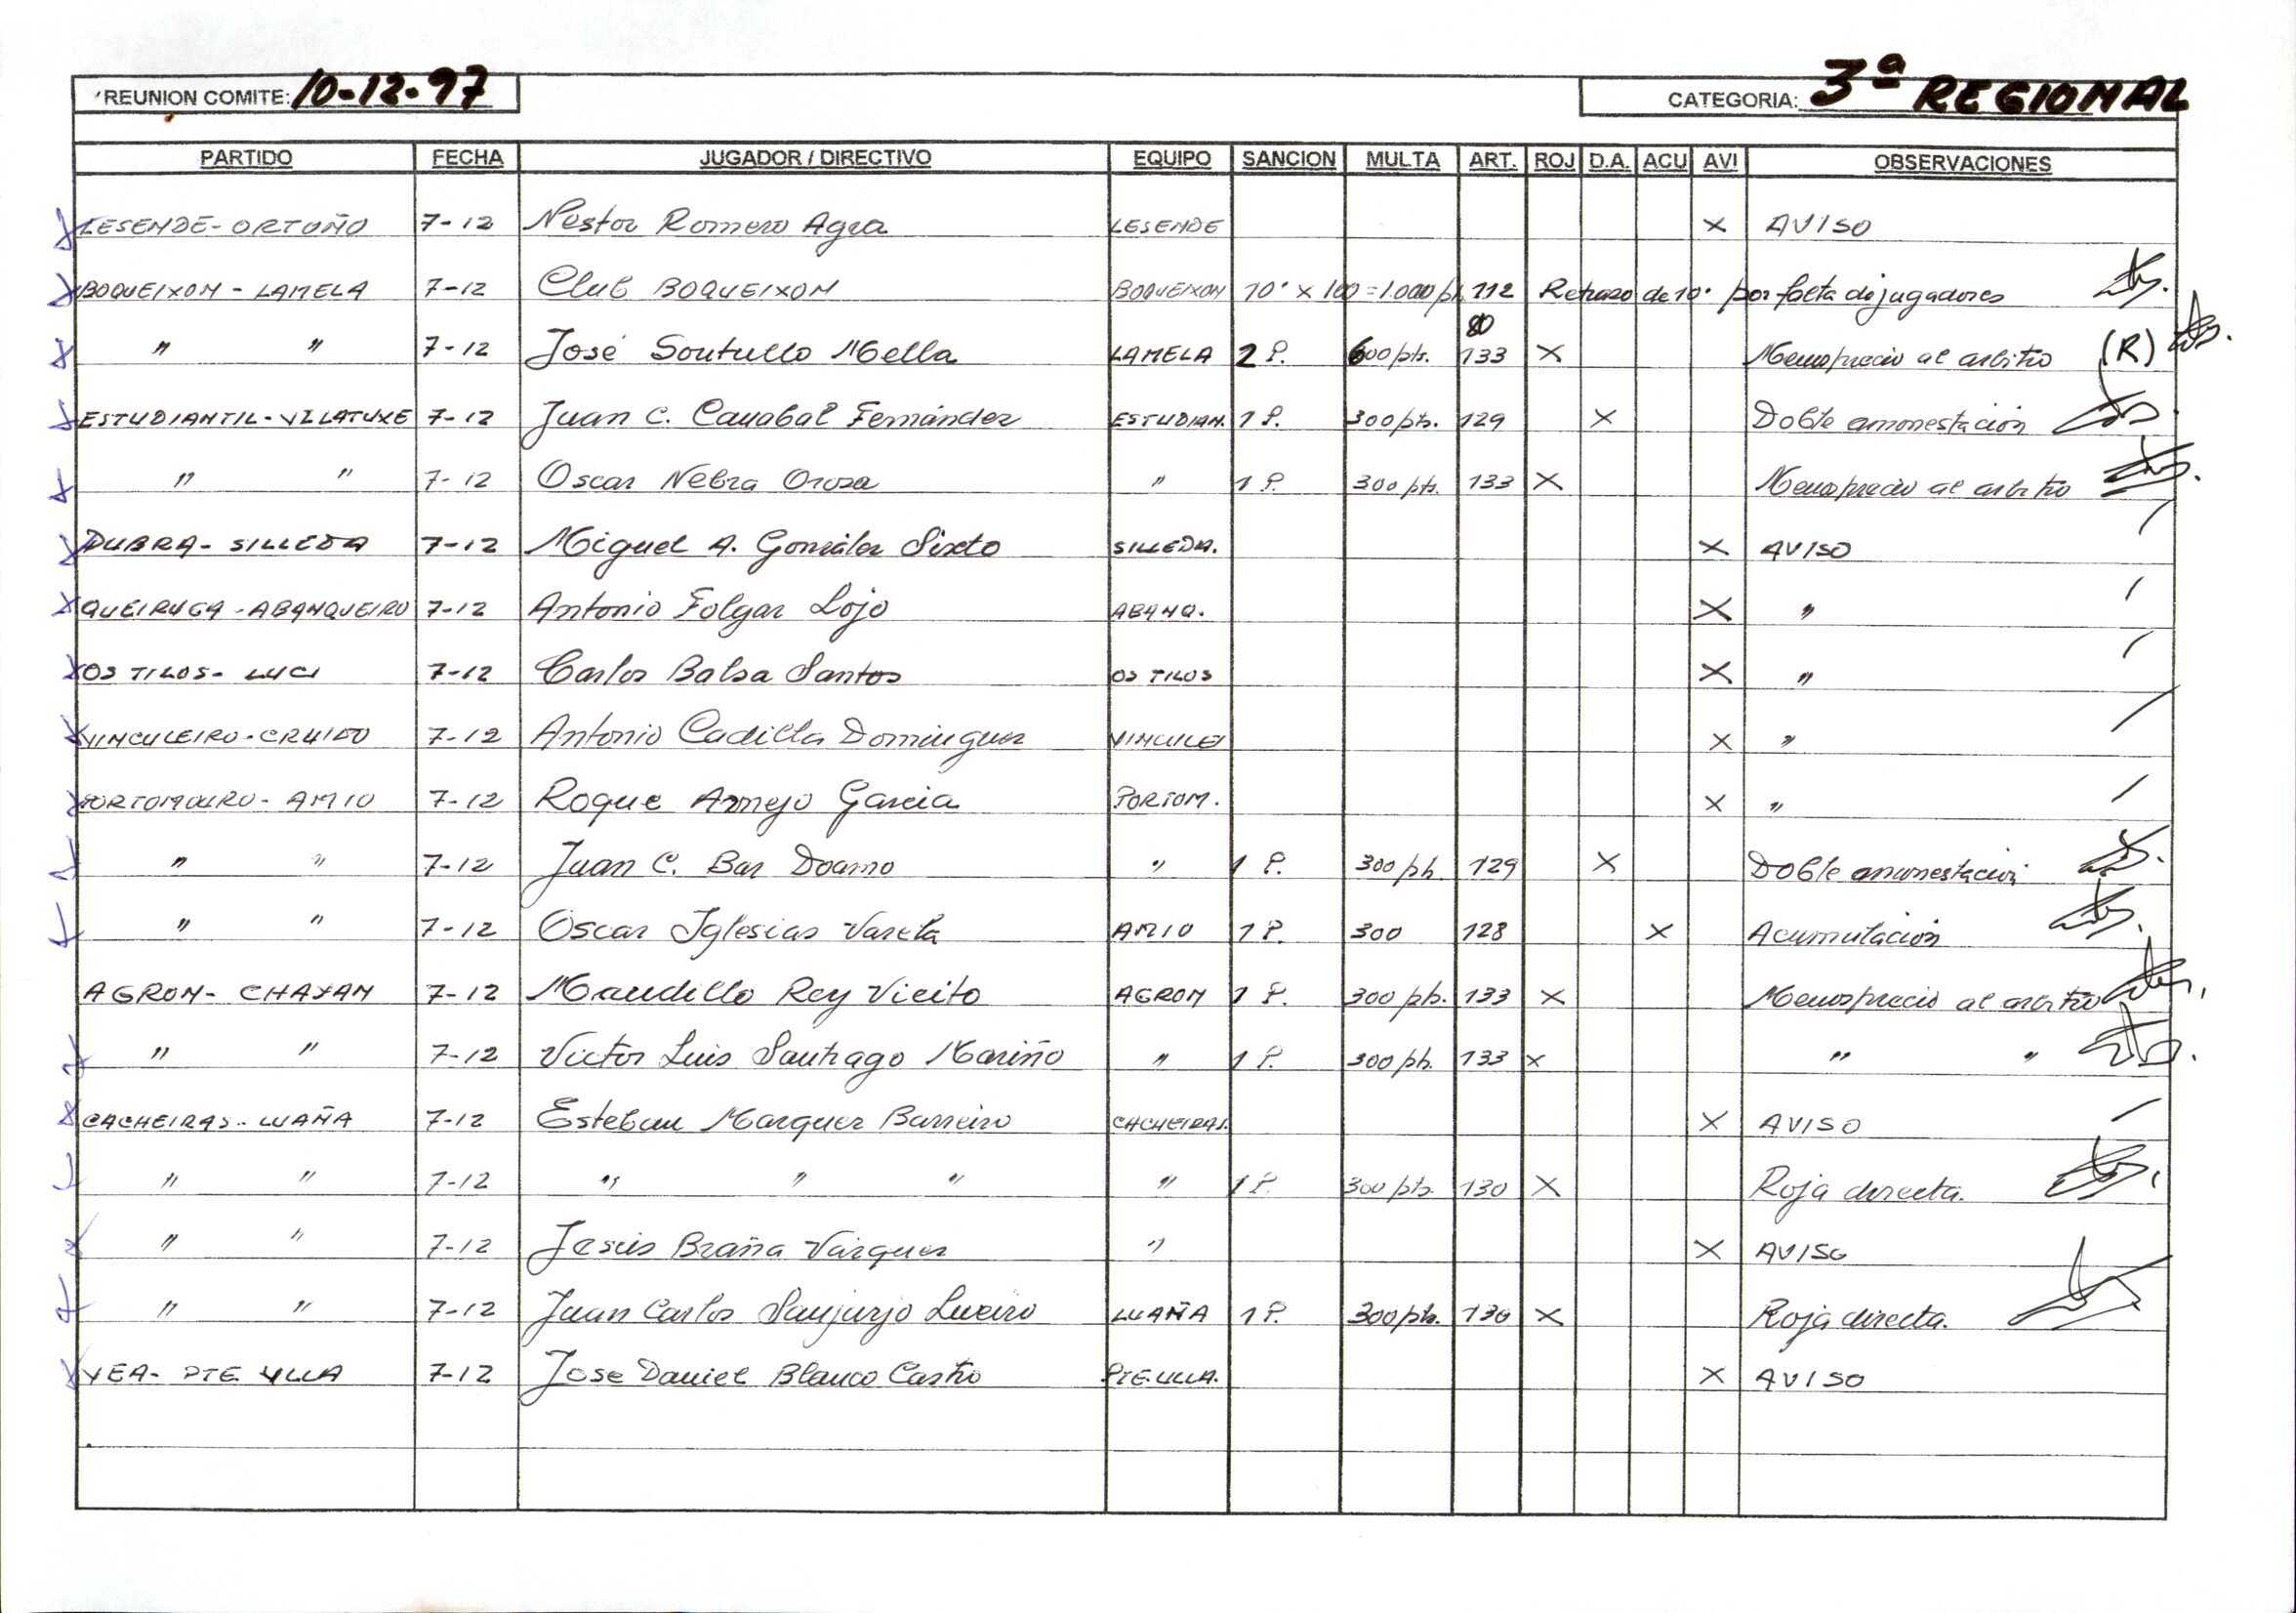 REUNION COMITE: 10-12-97 CATEGORIA: 3ª REGIONAL
PARTIDO FECHA JUGADOR / DIRECTIVO EQUIPO SANCION MULTA ART. ROJ D.A. ACU AVI OBSERVACIONES
LESENDE - ORTOÑO 7-12 Nestor Romero Agra LESENDE X AVISO
BOQUEIXON - LAMELA 7-12 Club BOQUEIXON BOQUEIXON 10' x 100 = 1.000 pts. 112 Retraso de 10' por falta de jugadores
" " 7-12 José Soutullo Mella LAMELA 2 P. 600 pts. 80 133 X Menosprecio al arbitro (R)
ESTUDIANTIL - VILATUXE 7-12 Juan C. Carrabal Fernández ESTUDIAN. 1 P. 300 pts. 129 X Doble amonestación
" " 7-12 Oscar Nebra Orosa " 1 P. 300 pts. 133 X Menosprecio al arbitro
DUBRA - SILLEDA 7-12 Miguel A. González Sixto SILLEDA. X AVISO
QUEIRUGA - ABANQUEIRO 7-12 Antonio Folgar Lojo ABANQ. X "
OS TILOS - LUCI 7-12 Carlos Balsa Santos OS TILOS X "
VINCULEIRO - CRUIDO 7-12 Antonio Cadilla Dominguez VINCULEI X "
PORTOMOURO - AMIO 7-12 Roque Armejo Garcia PORTOM. X "
" " 7-12 Juan C. Bar Doamo " 1 P. 300 pts. 129 X Doble amonestación
" " 7-12 Oscar Iglesias Varela AMIO 1 P. 300 128 X Acumulación
AGRON - CHAYAN 7-12 Maudillo Rey Vieito AGRON 1 P. 300 pts. 133 X Menosprecio al arbitro
" " 7-12 Victor Luis Santiago Mariño " 1 P. 300 pts. 133 X " "
CACHEIRAS - LUAÑA 7-12 Esteban Marquez Barreiro CACHEIRAS. X AVISO
" " 7-12 " " " " 1 P. 300 pts. 130 X Roja directa.
" " 7-12 Jesús Braña Vázquez " X AVISO
" " 7-12 Juan Carlos Sanjurjo Lueiro LUAÑA 1 P. 300 pts. 130 X Roja directa.
VEA - PTE ULLA 7-12 Jose Daniel Blanco Castro PTE. ULLA. X AVISO